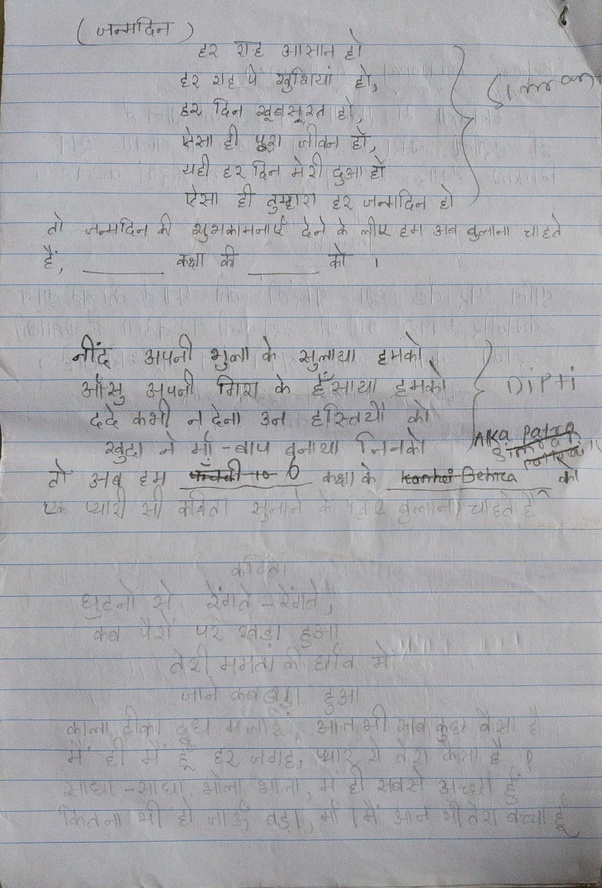 (जन्मदिन)
हर राह आसान हो
हर राह पे खुशियां हो,
हर दिन खूबसूरत हो,
ऐसा ही पूरा जीवन हो,
यही हर दिन मेरी दुआ हो
ऐसा ही तुम्हारा हर जन्मदिन हो
तो जन्मदिन की शुभकामनाएं देने के लीए हम अब बुलाना चाहते
हैं, ______ कक्षा की ______ को ।
नींद अपनी भुला के सुलाया हमको,
आंसु अपनी गिरा के हँसाया हमको
DiPti
दर्द कभी न देना उन हस्तियों को
खुदा ने माँ-बाप बनाया जिनको
Alka Patra
तो अब हम 6 कक्षा के Behera को
एक प्यारी सी कविता सुनाने के लिए बुलाना चाहते हैं
कविता
घुटनो से रेंगते-रेंगते,
कब पैरों पर खड़ा हुआ
तेरी ममता की छाँव में
जाने कब बड़ा हुआ
काला टीका दूध मलाई, आज भी सब कुछ वैसा है
मैं ही मैं हूँ हर जगह, प्यार ये तेरा कैसा है ?
सीधा-साधा, भोला भाला, मैं ही सबसे अच्छा हूँ
कितना भी हो जाऊँ बड़ा, माँ ! मैं आज भी तेरा बच्चा हूँ